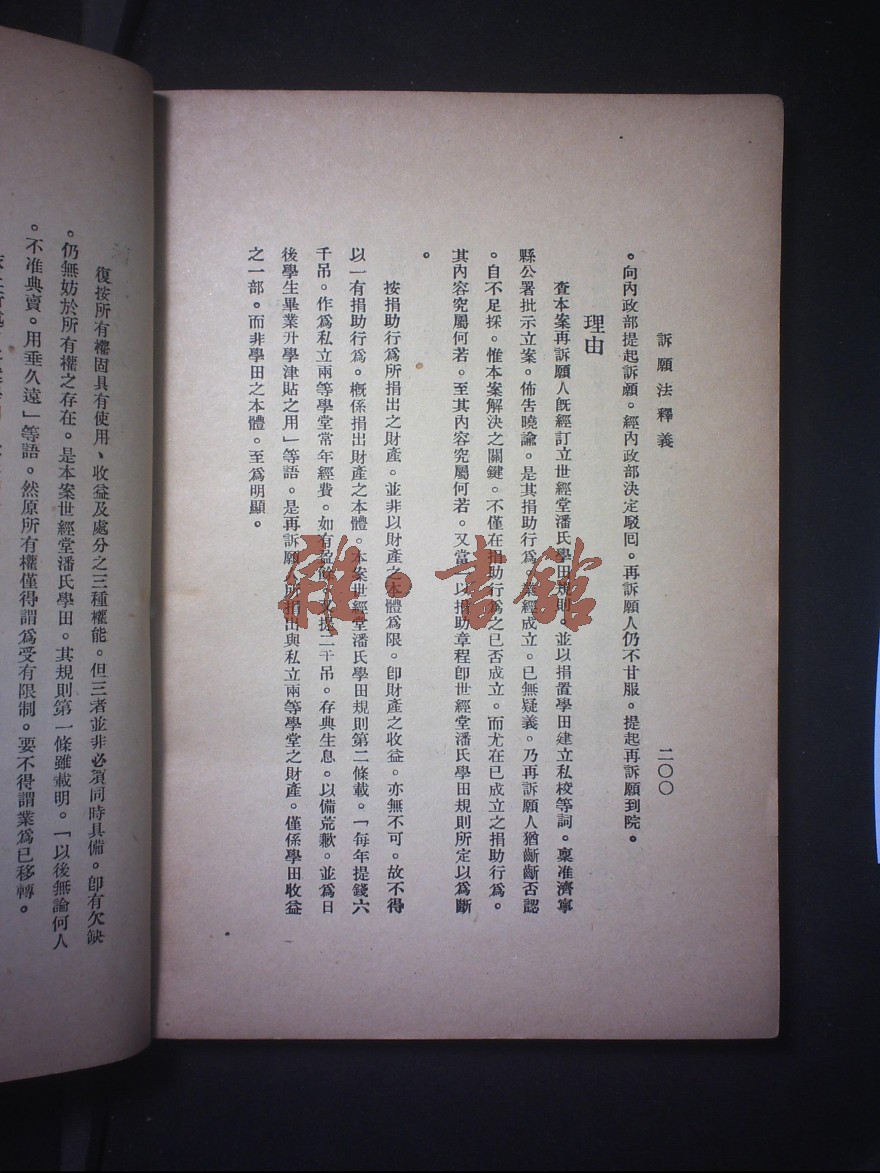 訴願法釋義
二〇〇
。向內政部提起訴願。經內政部決定駁囘。再訴願人仍不甘服。提起再訴願到院。
理由
查本案再訴願人旣經訂立世經堂潘氏學田規則。並以捐置學田建立私校等詞。稟准濟寧
縣公署批示立案。佈告曉諭。是其捐助行爲。業經成立。已無疑義。乃再訴願人猶齗齗否認
。自不足採。惟本案解決之關鍵。不僅在捐助行爲之已否成立。而尤在已成立之捐助行爲。
其內容究屬何若。至其內容究屬何若。又當一以捐助章程卽世經堂潘氏學田規則所定以爲斷
。
按捐助行爲所捐出之財產。並非以財產之本體爲限。卽財產之收益。亦無不可。故不得
以一有捐助行爲。槪係捐出財產之本體。本案世經堂潘氏學田規則第二條載。「每年提錢六
千吊。作爲私立兩等學堂常年經費。如有盈餘。又提二千吊。存典生息。以備荒歉。並爲日
後學生畢業升學津貼之用」等語。是再訴願人所捐出與私立兩等學堂之財產。僅係學田收益
之一部。而非學田之本體。至爲明顯。
復按所有權固具有使用、收益及處分之三種權能。但三者並非必須同時具備。卽有欠缺
。仍無妨於所有權之存在。是本案世經堂潘氏學田。其規則第一條雖載明。「以後無論何人
。不准典賣。用垂久遠」等語。然原所有權僅得謂爲受有限制。要不得謂業爲已移轉。
雜·書館